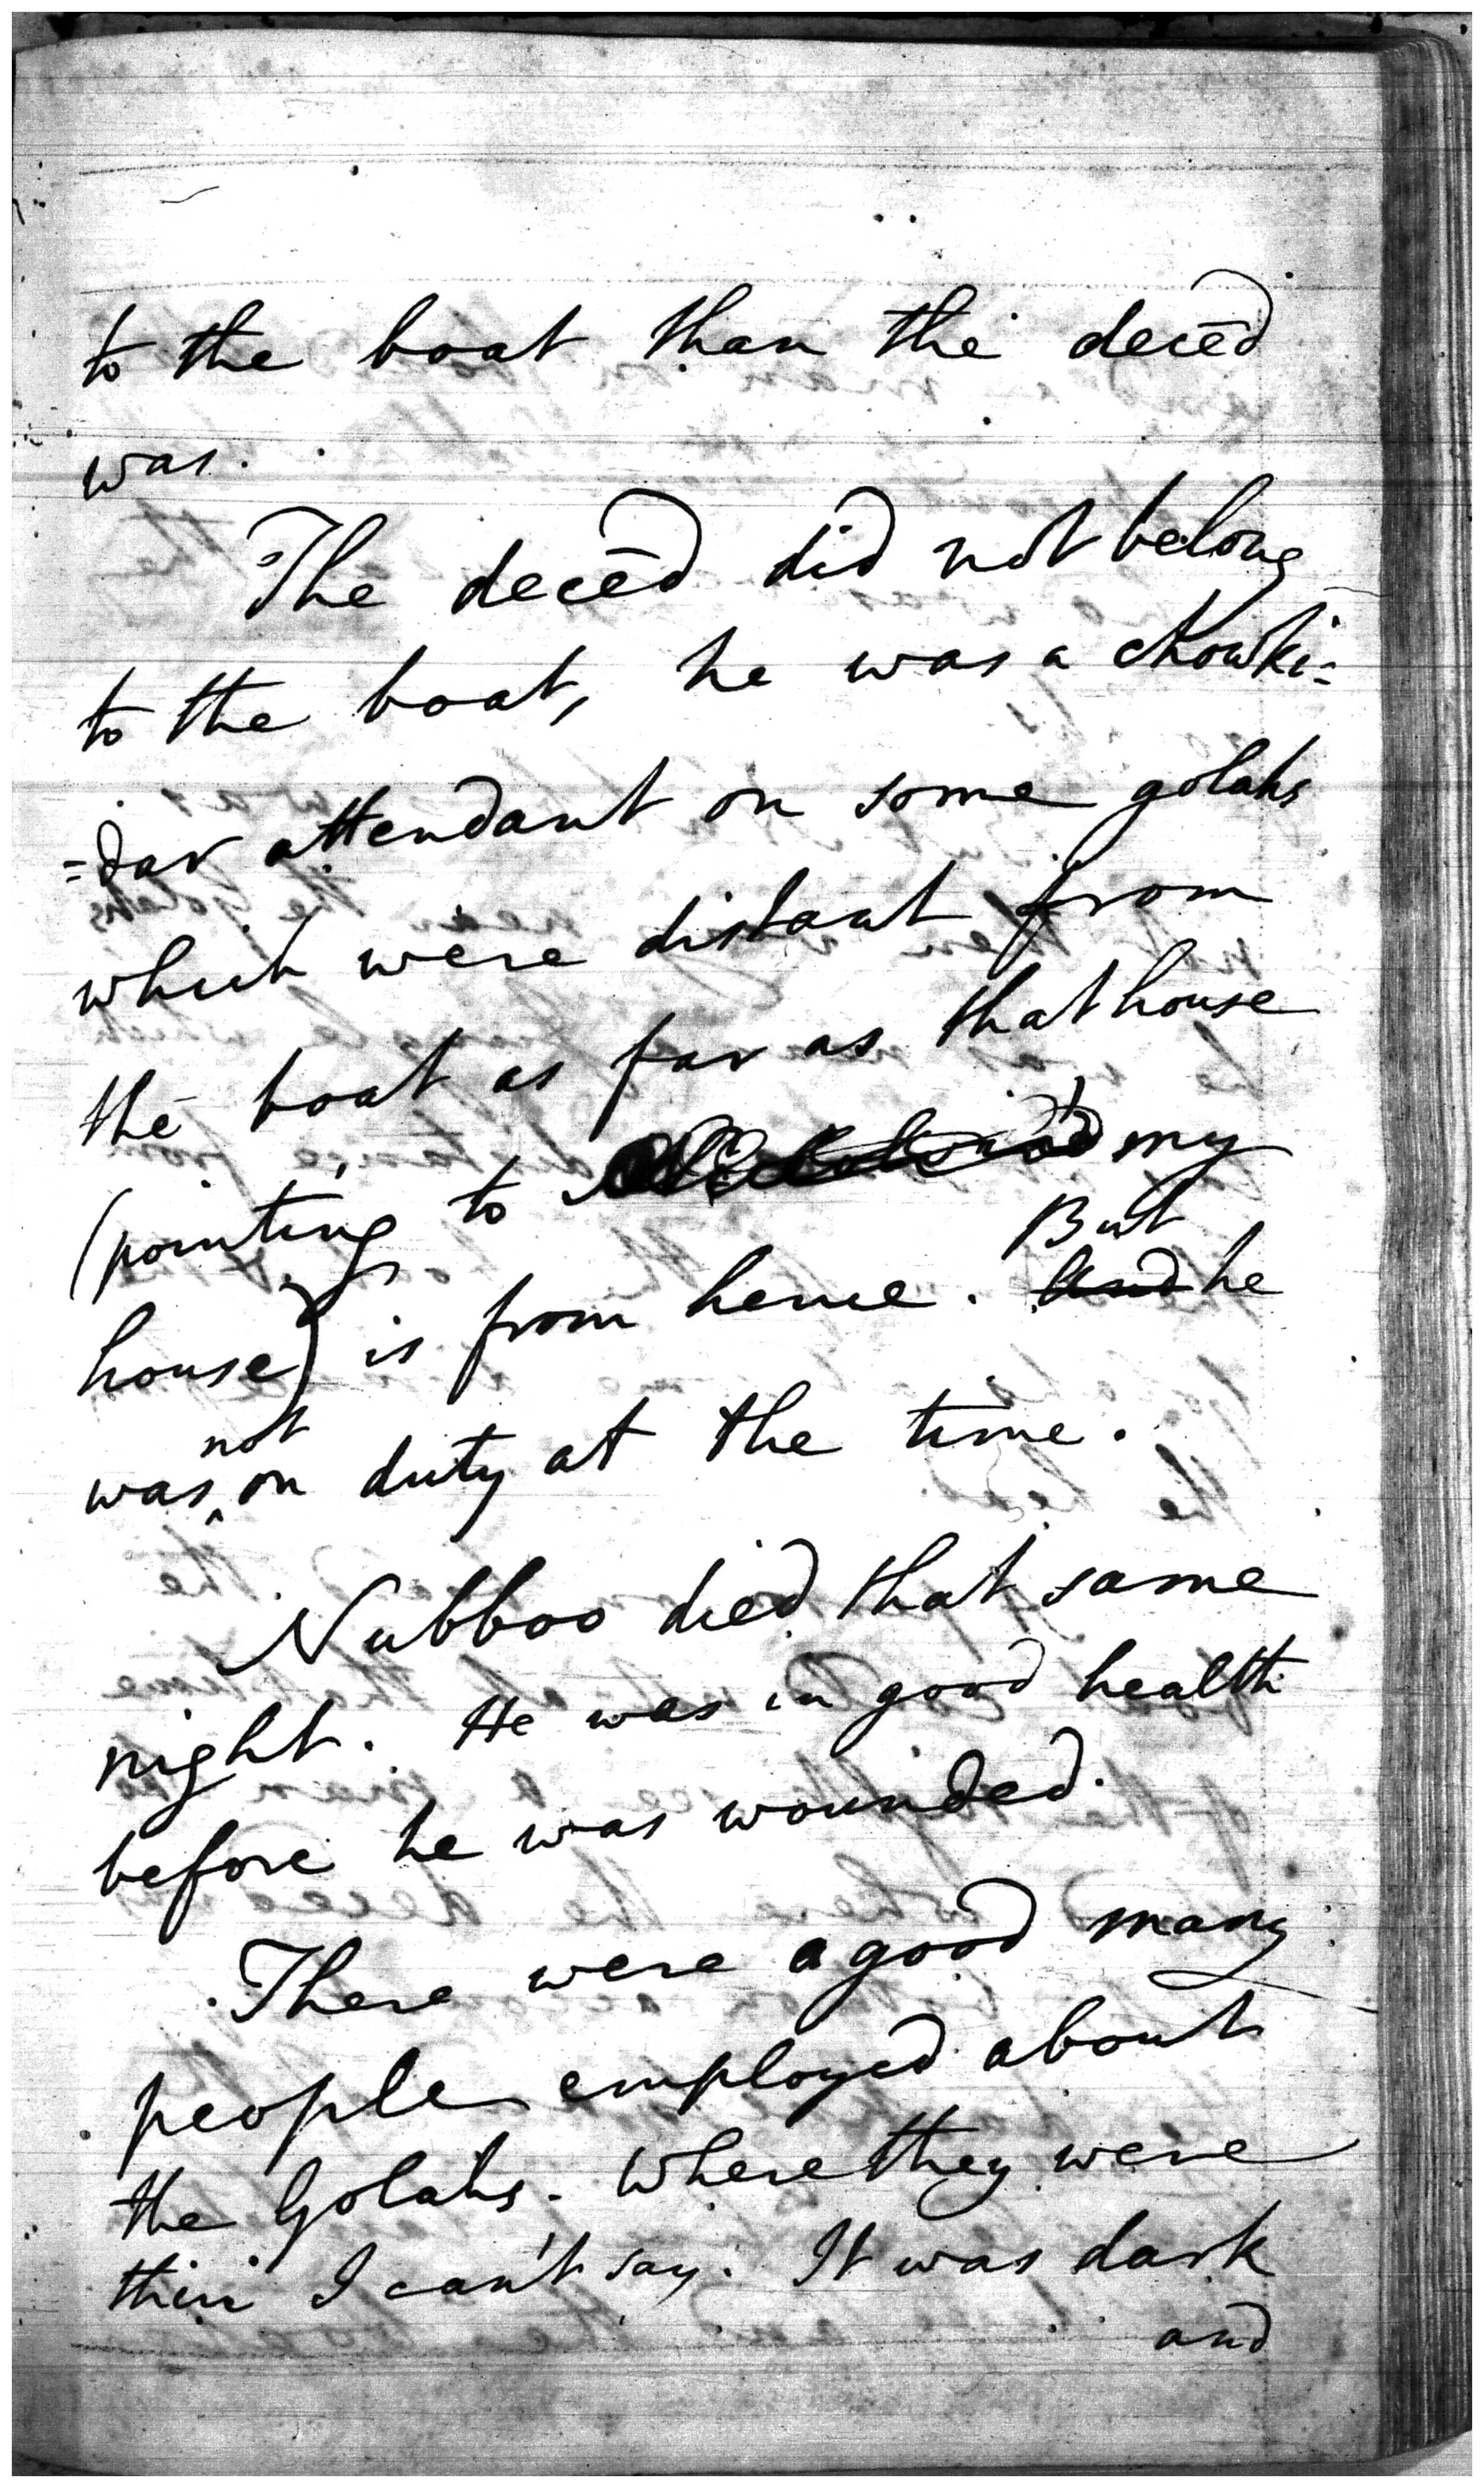 to the boat than the decēd
was.
The decēd did not belong
to the boat, he was a chowki=
=dar attendant on some golahs
which were distant from
the boat as far as that house
(pointing to my
But
house) is from hence. and he
not
was on duty at the time.
Nubboo died that same
night. He was in good health
before he was wounded.
There were a good many
people employed about
the Golahs. Where they were
then I can't say. It was dark
and